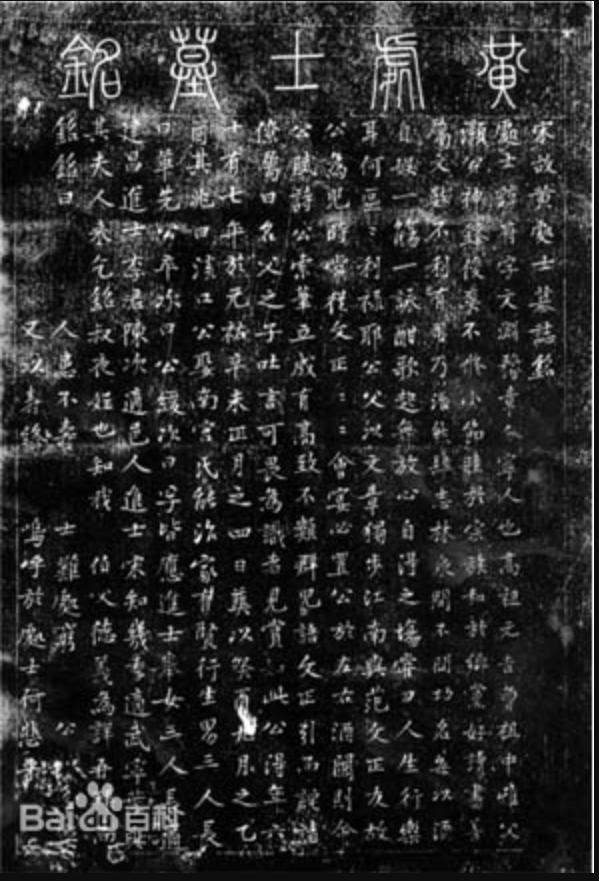 黃處士墓銘
宋故黃處士墓誌銘
處士諱育字文潤豫章分寧人也高祖元吉曾祖中雅父
公神鋒俊不修小節於宗族和於鄉黨好讀書善
屬文數不利有司乃浩然志林泉間不聞功名以酒
自娛一觴一詠酣歌起舞放心自得之場嘗曰人生行樂
耳何區〻利祿耶公父以文章獨步江南與范文正友故
公為兒時嘗從文正〻〻會宴必置公於左右酒闌則令
公賦詩公索筆立成有高致不類群兒語文正引而諸
僚舊曰名父之子吐言可畏為識者見賞如此公得年六
十有七卒於元祐辛未正月之四日葬以癸酉九月之乙
酉其兆曰溪口公娶南宮氏能治家有賢行生男三人長
曰華先公卒次曰公綬次曰字皆應進士舉女三人長適
建昌進士李君陳次適邑人進士宋知幾季適武寧
其夫人來乞銘叔夜姪也知我伯父德義為詳
銘銘曰 人患不壽 士難處窮 公
又以壽終 嗚呼於處士何悲
Bai百科